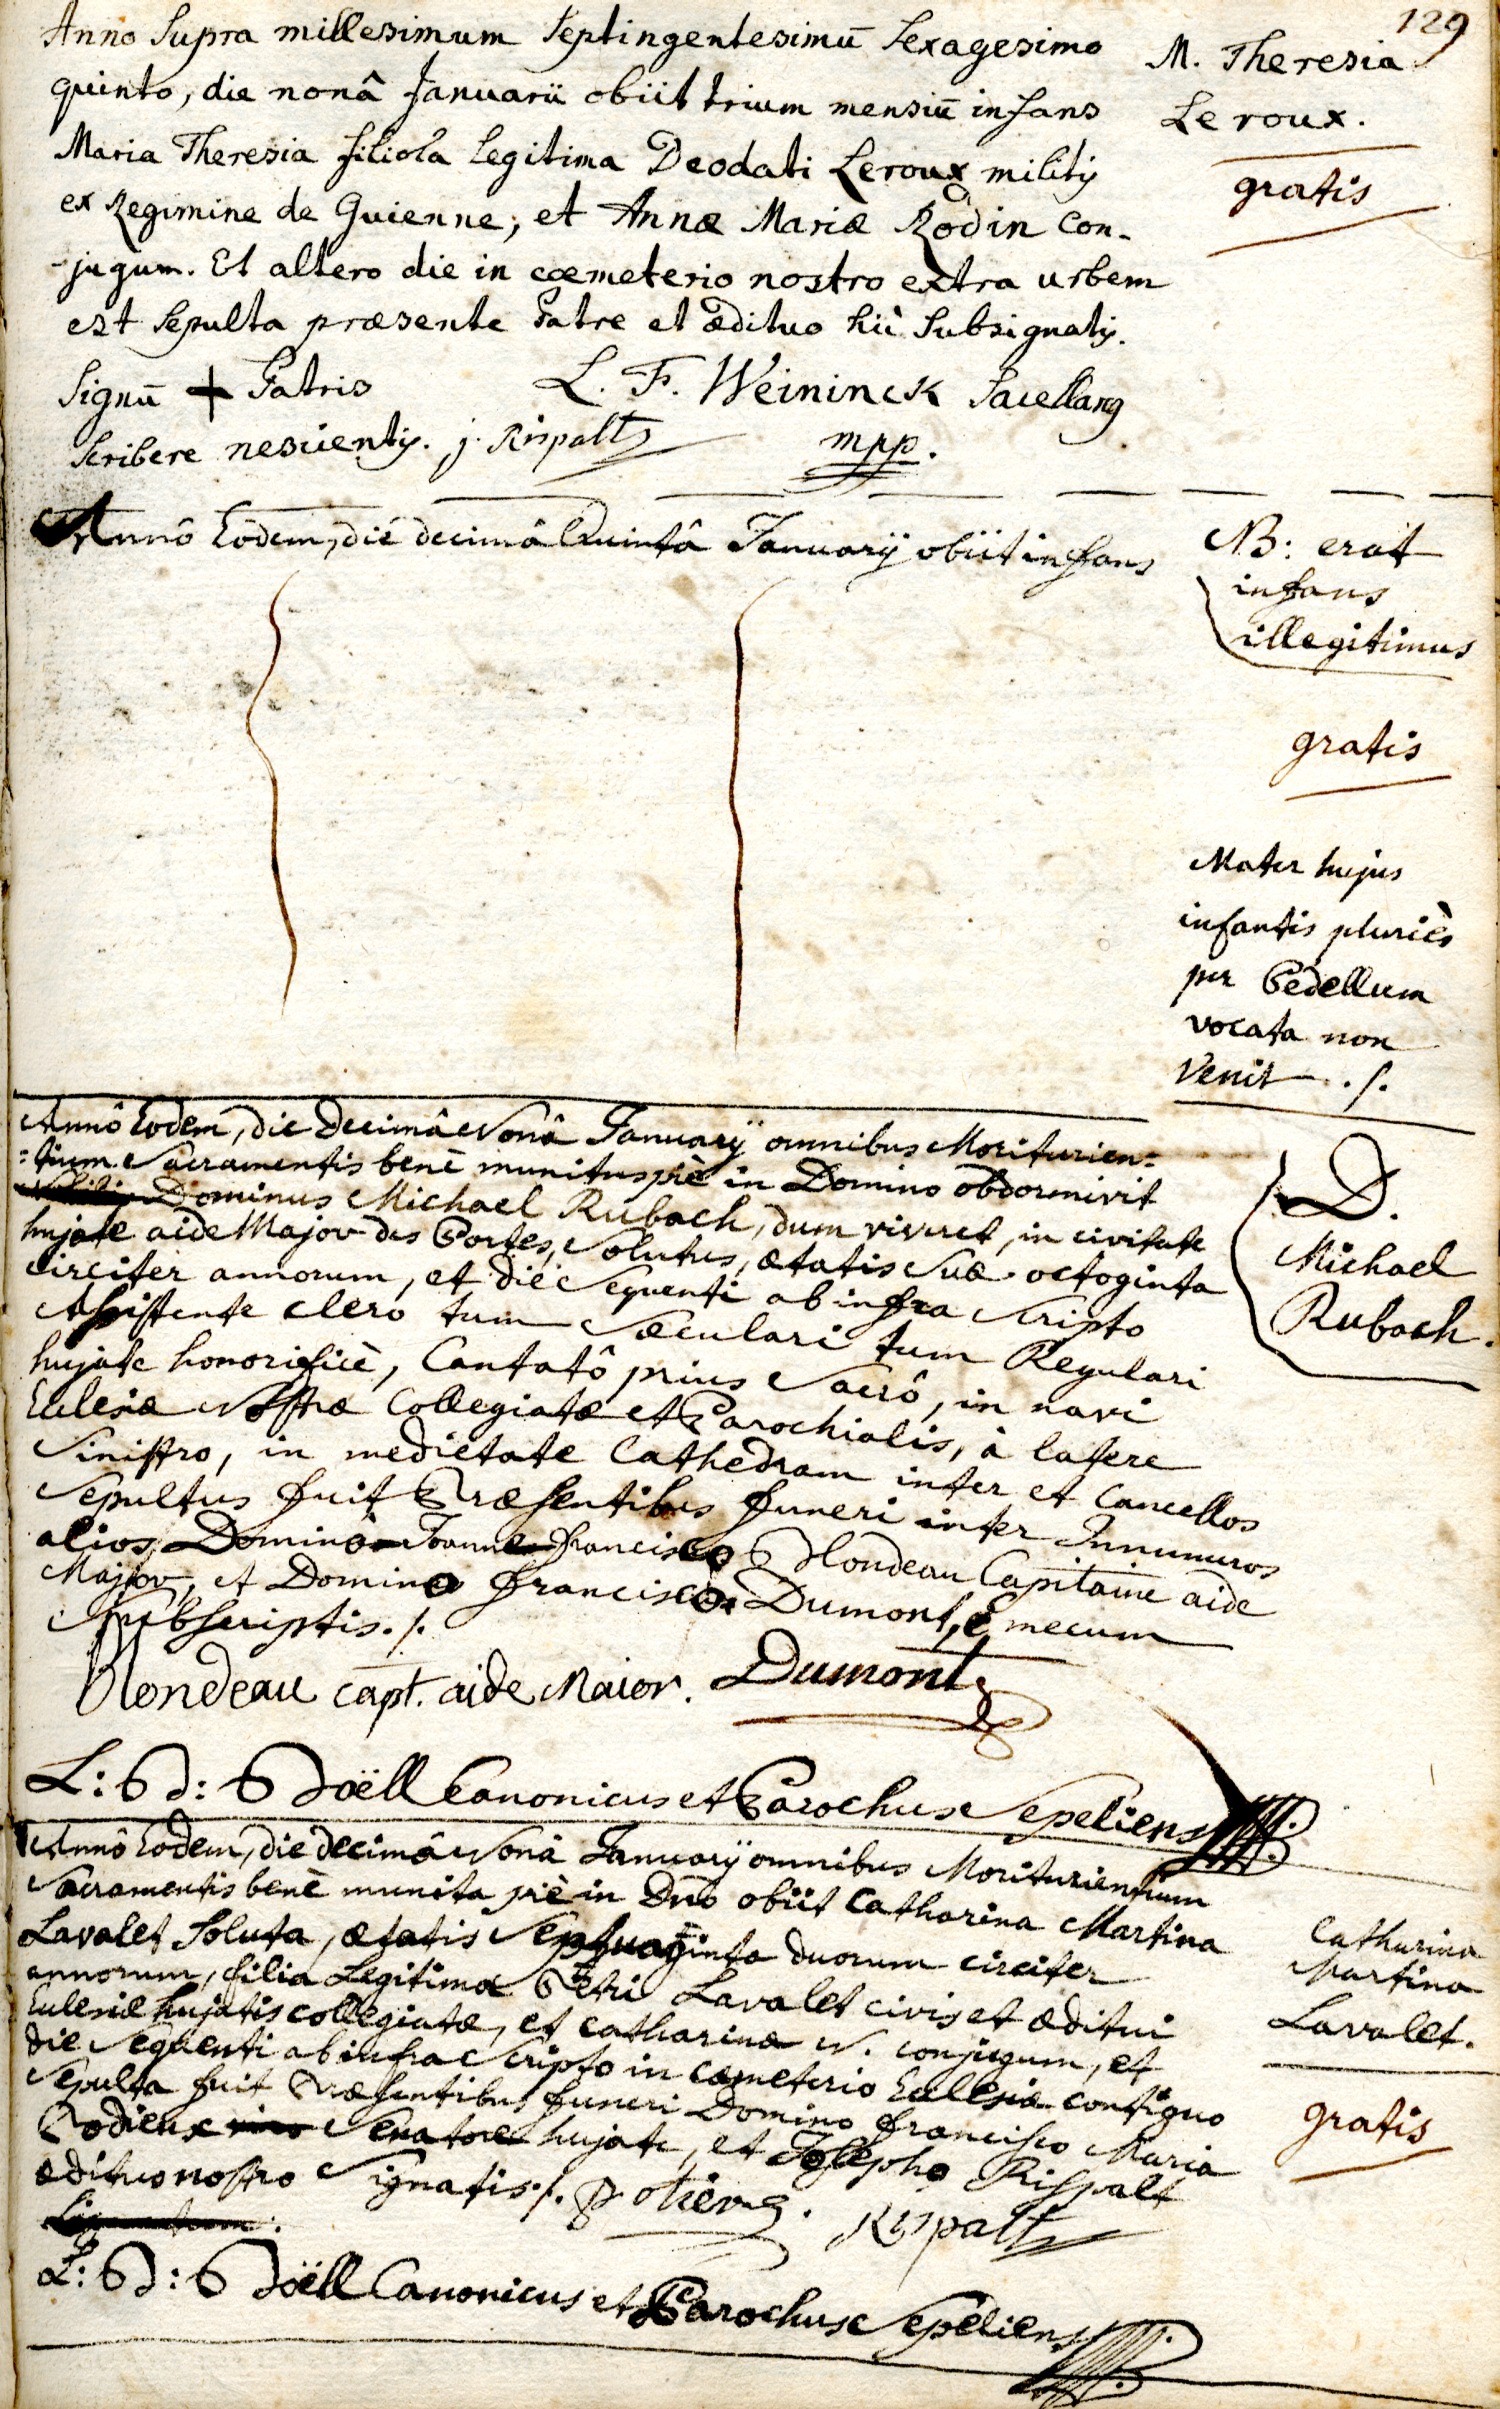 129
Anno Supra millesimum Septingentesimū Sexagesimo
quinto, die nonâ Januarii obiit trium mensiū infans
Maria Theresia filiola legitima Deodati Leroux militis
ex Regimine de Guienne, et Annæ Mariæ Rodin Con-
-jugum. Et altero die in cœmeterio nostro extra urbem
est Sepulta præsente Patre et ædituo hic Subsignatis.
Signū + Patris
Scribere nescientis. j. Rispalts
L. F. Weininck Sacellanus
mpp.
M. Theresia
Leroux.
gratis
Annô Eôdem, die decimâ Quintâ Januarij obiit infans
NB: erat
infans
illegitimus
gratis
Mater hujus
infantis pluriès
per Pedellum
vocata non
Venit ./.
Annô Eodem, die Decimâ Nonâ Januarij omnibus Moriturien=
=tium Sacramentis benè munitus piè in Domino obdormivit
Dominus Michael Rubach, dum viveret, in civitate
hujate aide Major des Portes, Solutus, ætatis Suæ octoginta
circiter annorum, et die Sequenti ab infra Scripto
Assistente Clero tum Sæculari tum Regulari
hujate honorificè, Cantatô prius Sacrô, in navi
Eclesiæ Nostræ Collegiatæ et Parochialis, à latere
Sinistro, in medietate Cathedram inter et Cancellos
Sepultus fuit Præsentibus funeri inter Innumeros
alios Domino Joanne francisco Blondeau Capitaine aide
Major, et Domino francisco Dumont, mecum
Subscriptis ./.
Blondeau capt. aide Maior. Dumont
L: Bd: B Doëll Canonicus et Parochus Sepeliens
D.
Michael
Rubach.
Annô Eodem, die decimâ Nonâ Januarij omnibus Moriturientium
Sacramentis benè munita piè in Dno obiit Catharina Martina
Lavalet Soluta, ætatis Septuaginta duorum circiter
annorum, filia Legitima Petri Lavalet civis et æditui
Eclesiæ hujatis collegiatæ, et Catharinæ N. conjugum, et
die Sequenti ab infra Scripto in Cæmeterio Eclesiæ contiguo
Sepulta fuit Præsentibus funeri Domino francisco Maria
Podieux Senatore hujate, et Josepho Rispalt
ædituo nostro Signatis ./. Rispalts
L: Bd: B Doëll Canonicus et Parochus Sepeliens
Catharina
Martina
Lavalet.
gratis